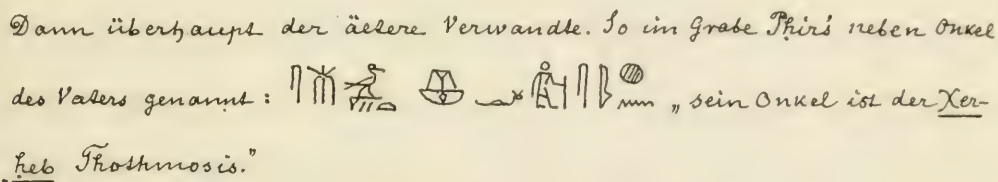 Dann überhaupt der äetere Verwandte. So im Grabe Phirs' neben Onkel
des Vaters genannt: „sein Onkel ist der Xer-
heb Thothmosis."